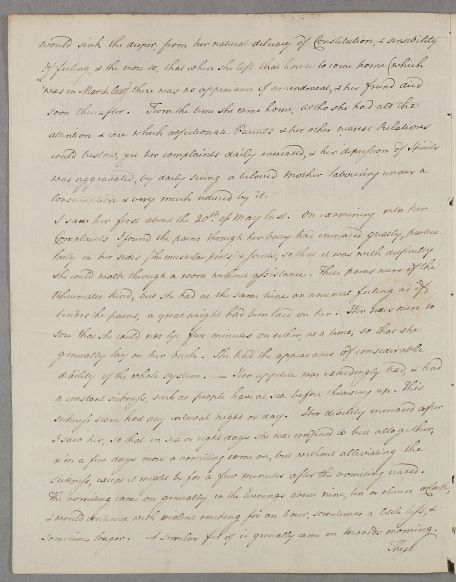 would sink the deeper, from her natural delicacy of Constitution, & sensibility
of feeling, & the more so, that when she left that house to come home (which
was in March last) there was no appearance of amendment, & her friend died
soon thereafter. From the time she came home, altho she had all the
attention & care which affectionate Parents & her other nearest Relations
could bestow, yet her complaints daily encreased, & her depression of Spirits
was aggravated, by daily seeing a beloved Mother labouring under a
Consumption & very much reduced by it.
I saw her first about the 20th. of May last. On examining into her
Complaints I found the pains through her body had increased greatly, particu
larly in her sides (the muscular parts) & joints, so that it was with difficulty
she could walk through a room without assistance. These pains were of the
Rheumatic kind, but she had at the same time an unusual feeling as if
besides the pains, a great weight had been laid on her. Her sides were so
sore that she could not lye five minutes on either, at a time, so that she
generally lay on her back. She had the appearance of considerable
debility of the whole system. — Her appetite was exceedingly bad, & had
a constant sickness, such as people have at sea before throwing up. This
sickness scarce had any interval night or day. Her debility encreased after
I saw her, so that in six or eight days she was confined to bed altogether,
& in a few days more a vomiting came on, but without alleviating the
sickness, unless it might be for a few minutes after the vomiting ceased.
The vomiting came on generally in the Evenings about nine, ten or eleven oClock,
& would continue with violent reaching for an hour, sometimes a little less, &
sometimes longer. A similar fit of it generally came on towards morning.
These